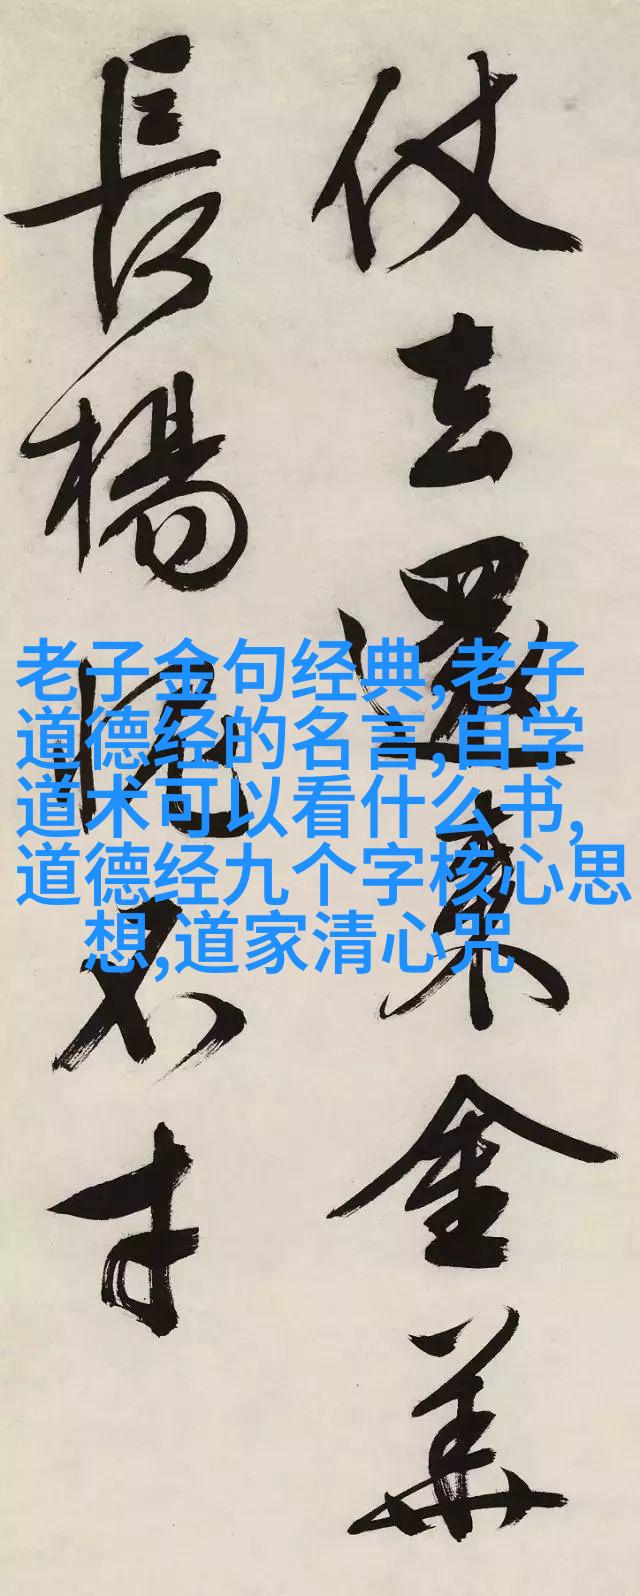 仗去還金華
長楊不才
老子金句经典,老子
道德经的名言,自学
道术可以看什么书,
道德经九个字核心思
想,道家清心咒